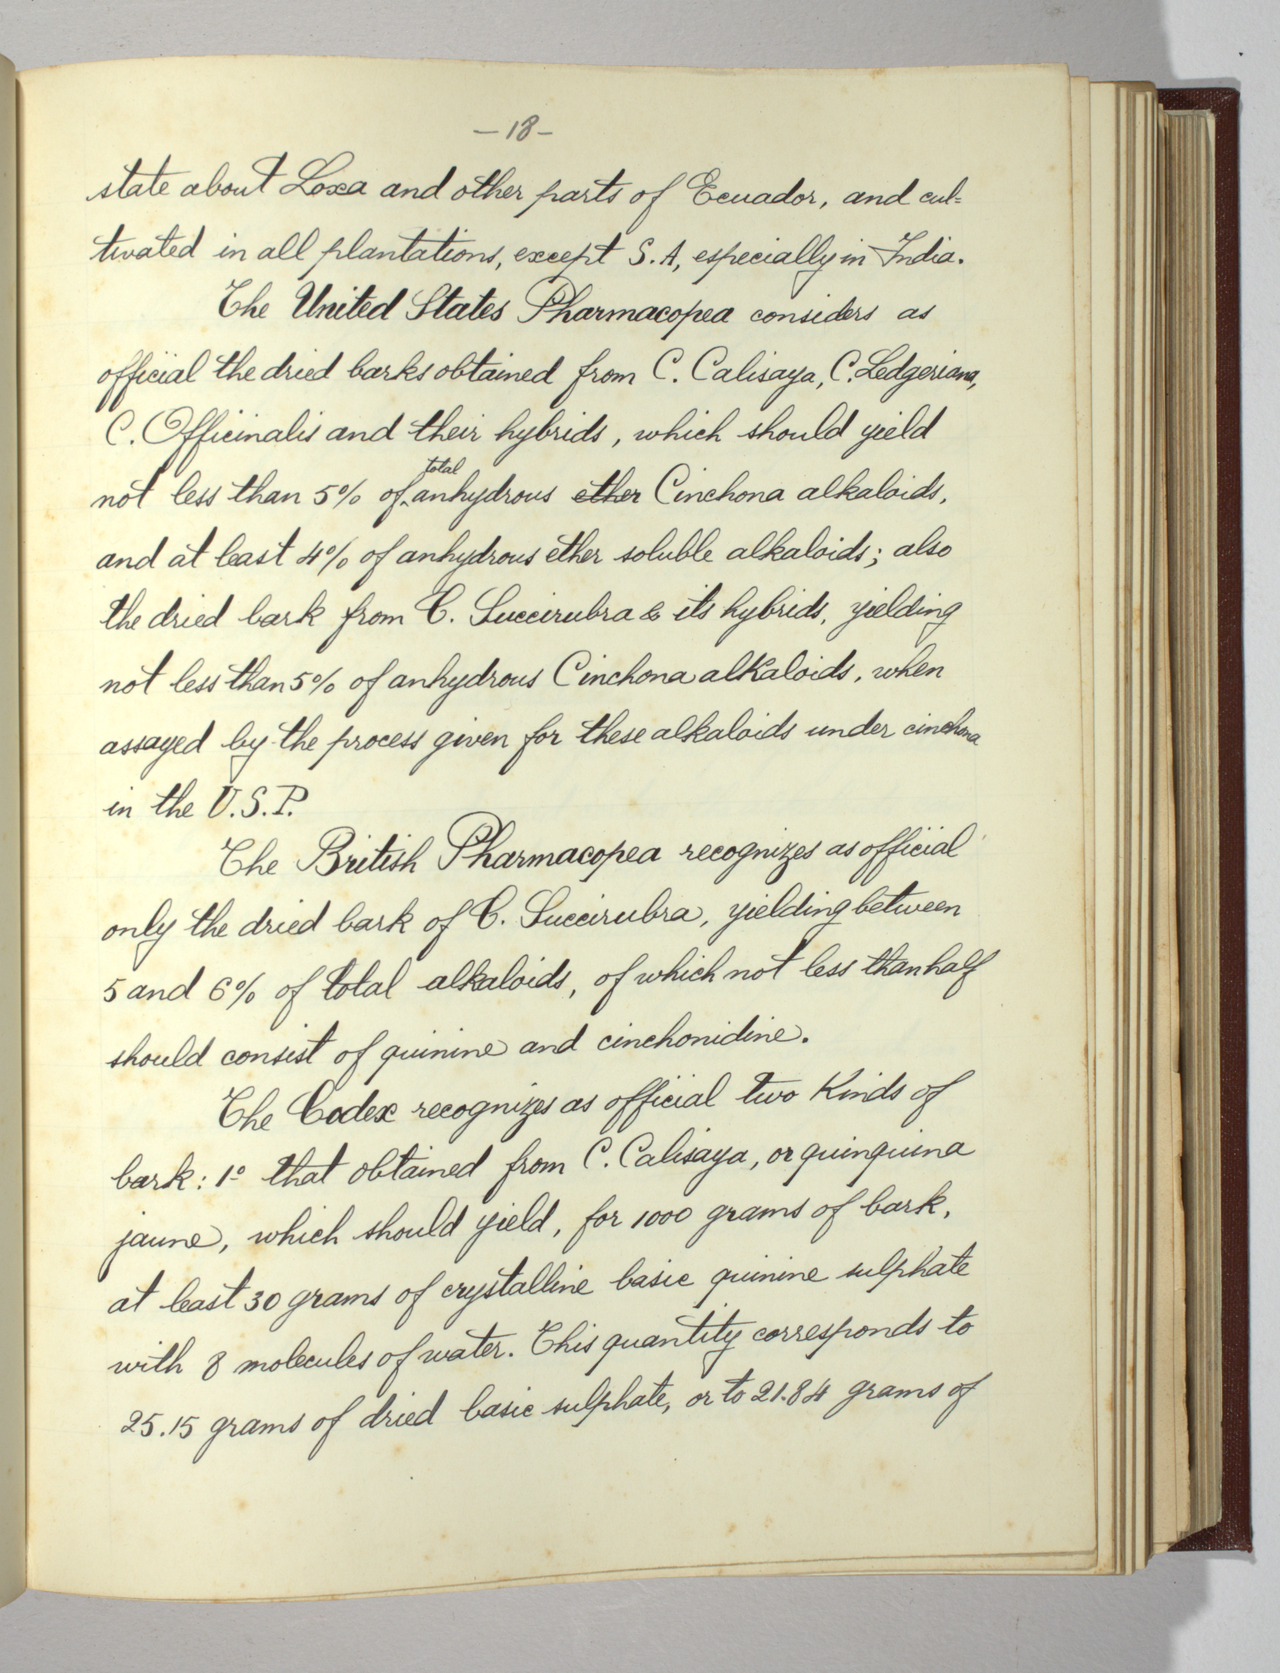 —18—
state about Loxa and other parts of Ecuador, and cul=
tivated in all plantations, except S. A, especially in India.
The United States Pharmacopea considers as
official the dried barks obtained from C. Calisaya, C. Ledgeriana,
C. Officinalis and their hybrids, which should yield
total
not less than 5% of ‸ anhydrous ether Cinchona alkaloids,
and at least 4% of anhydrous ether soluble alkaloids; also
the dried bark from C. Succirubra & its hybrids, yielding
not less than 5% of anhydrous Cinchona alkaloids, when
assayed by the process given for these alkaloids under cinchona
in the U.S.P.
The British Pharmacopea recognizes as official
only the dried bark of C. Succirubra, yielding between
5 and 6% of total alkaloids, of which not less than half
should consist of quinine and cinchonidine.
The Codex recognizes as official two Kinds of
bark: 1º that obtained from C. Calisaya, or quinquina
jaune, which should yield, for 1000 grams of bark,
at least 30 grams of crystalline basic quinine sulphate
with 8 molecules of water. This quantity corresponds to
25.15 grams of dried basic sulphate, or to 21.84 grams of